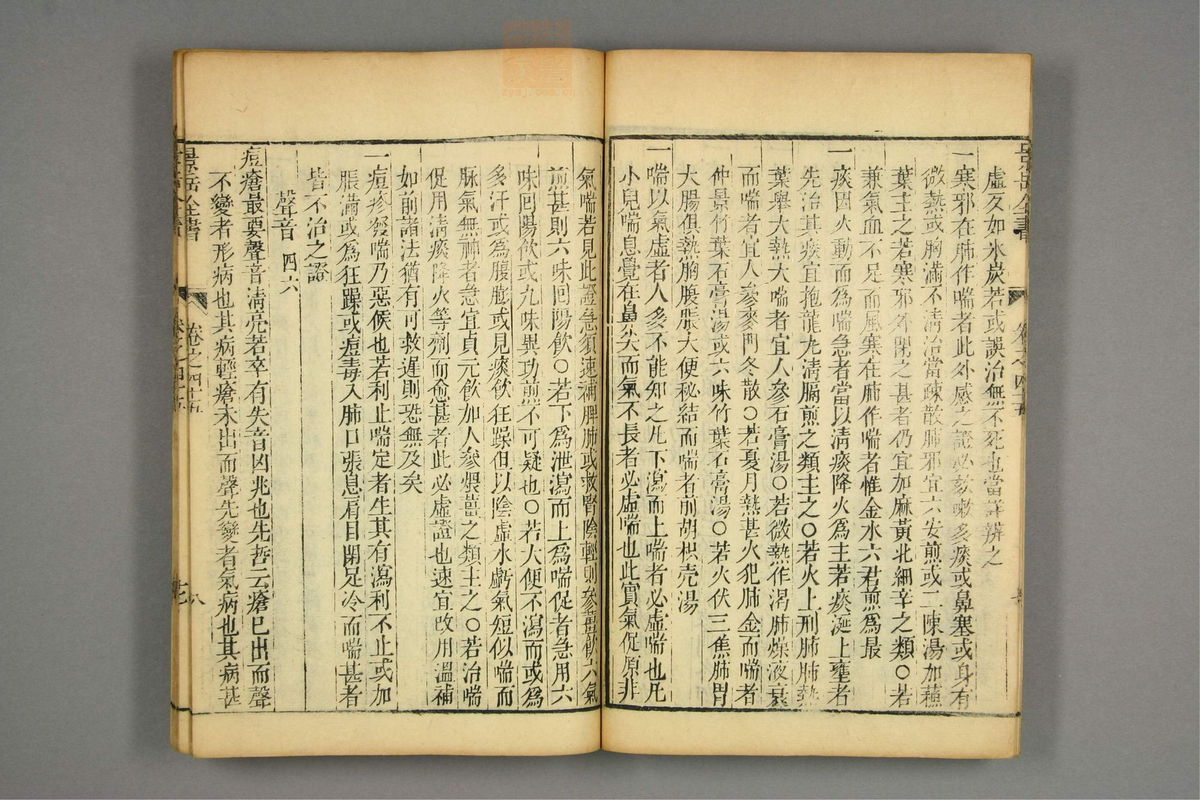 景岳全書 卷之四十五
虛久如氷炭若或誤治無不死也當詳辨之
一寒邪在肺作喘者此外感之證必咳嗽多痰或鼻塞或身有
微熱或胸滿不淸治當踈散肺邪宜六安煎或二陳湯加蘇
葉主之若寒邪外閉之甚者仍宜加麻黃北細辛之類○若
兼氣血不足而風寒在肺作喘者惟金水六君煎爲最
一痰因火動而爲喘急者當以淸痰降火爲主若痰涎上壅者
先治其痰宜抱龍丸淸膈煎之類主之○若火上刑肺肺熱
葉舉大熱大喘者宜人參石膏湯○若微熱作渴肺燥液衰
而喘者宜人參麥門冬散○若夏月熱甚火犯肺金而喘者
仲景竹葉石膏湯或六味竹葉石膏湯○若火伏三焦肺胃
大腸俱熱胸腹脹大便秘結而喘者前胡枳壳湯
一喘以氣虛者人多不能知之凡下瀉而上喘者必虛喘也凡
小兒喘息覺在鼻尖大而氣不長者必虛喘也此實氣促原非
氣喘若見此證急須速補脾肺或救腎陰輕則參薑飮六氣
煎甚則六味回陽飮○若下爲泄瀉而上爲喘促者急用六
味回陽飮或九味異功煎不可疑也○若大便不瀉而或爲
多汗或爲腹膨或見痰飮狂躁但以陰虛水虧氣短似喘而
脉氣無神者急宜貞元飮加人參煨薑之類主之○若治喘
促用淸痰降火等劑而愈甚者此必虛證也速宜改用溫補
如前諸法猶有可救遲則恐無及矣
一痘疹發喘乃惡候也若利止喘定者生其有瀉利不止或加
脹滿或爲狂躁或痘毒入肺口張息肩目閉足冷而喘甚者
皆不治之證
聲音 四六
痘瘡最要聲音淸亮若卒有失音凶兆也先哲云瘡已出而聲
不變者形病也其病輕瘡未出而聲先變者氣病也其病甚
景岳全書 卷之四十五 八